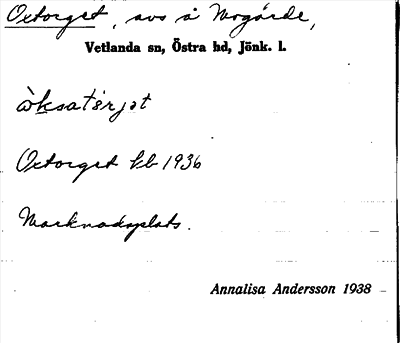 Oxtorget, avs å Norgårde,
Vetlanda sn, Östra hd, Jönk. l.
Oxtorget kb 1936
Marknadsplats.
Annalisa Andersson 1938